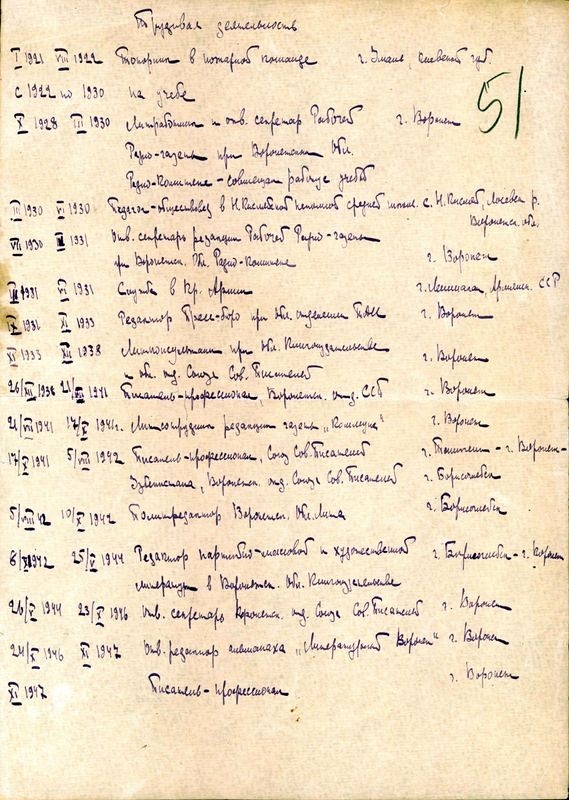 Трудовая деятельность
51
I 1921 VIII 1922 Топорник в пожарной команде г. Умань, Киевской губ.
с 1922 по 1930 на учебе
X 1928 III 1930 Литработник и отв. секретар Рабочей г. Воронеж
Радио-газеты при Воронежском Обл.
Радио-Комитете - совмещая работу с учебой
III 1930 VI 1930 Педагог-обществовед в Н. Кисляйской средней школе с. Н. Кисляй, Лосевск. р.
Воронежск. обл.
VII 1930 1931 Отв. секретарь редакции Рабочей Радио-газеты
при Воронежск. Обл. Радио-Комитете г. Воронеж
1931 VI 1931 Служба в Кр. Армии г. Ленинакан, Армянск. ССР
1931 XI 1933 Редактор Пресс-бюро при обл. отделении ТАСС г. Воронеж
XI 1933 XII 1938 Литконсультант при обл. Книгоиздательстве
и обл. отд. Союза Сов. Писателей г. Воронеж
26/XII 1938 21/VII 1941 Писатель-профессионал, Воронежск. отд. ССП г. Воронеж
21/VII 1941 17/X 1941 г. Литсотрудник редакции газеты „Коммуна" г. Воронеж
17/X 1941 5/VIII 1942 Писатель-профессионал, Союз Сов. Писателей г. Ташкент - г. Воронеж -
Узбекистана, Воронежск. отд. Союза Сов. Писателей г. Борисоглебск
5/VIII 42 10/X 1942 Политредактор Воронежск. Обл. Лита г. Борисоглебск
8/XI 1942 25/V 1944 Редактор партийно-массовой и художественной г. Борисоглебск - г. Воронеж
литературы в Воронежск. Обл. Книгоиздательстве
26/V 1944 23/X 1946 Отв. секретарь Воронежск. отд. Союза Сов. Писателей г. Воронеж
24/X 1946 XI 1947 Отв. редактор альманаха „Литературный Воронеж" г. Воронеж
XI 1947 Писатель-профессионал г. Воронеж